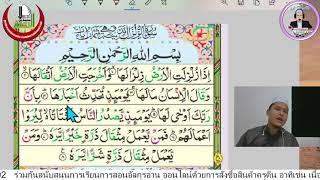 بِسْمِ اللَّهِ الرَّحْمَٰنِ الرَّحِيمِ
إِذَا زُلْزِلَتِ الْأَرْضُ زِلْزَالَهَا وَأَخْرَجَتِ الْأَرْضُ أَثْقَالَهَا
وَقَالَ الْإِنسَانُ مَا لَهَا يَوْمَئِذٍ تُحَدِّثُ أَخْبَارَهَا بِأَنَّ
رَبَّكَ أَوْحَىٰ لَهَا يَوْمَئِذٍ يَصْدُرُ النَّاسُ أَشْتَاتًا لِّيُرَوْا
أَعْمَالَهُمْ فَمَن يَعْمَلْ مِثْقَالَ ذَرَّةٍ خَيْرًا يَرَهُ وَمَن
يَعْمَلْ مِثْقَالَ ذَرَّةٍ شَرًّا يَرَهُ
92 ร่วมกันสนับสนุนการเรียนการสอนอัลกุรอาน ออนไลน์ด้วยการสั่งซื้อสินค้าครูดีน อาทิเช่น เนื้อ